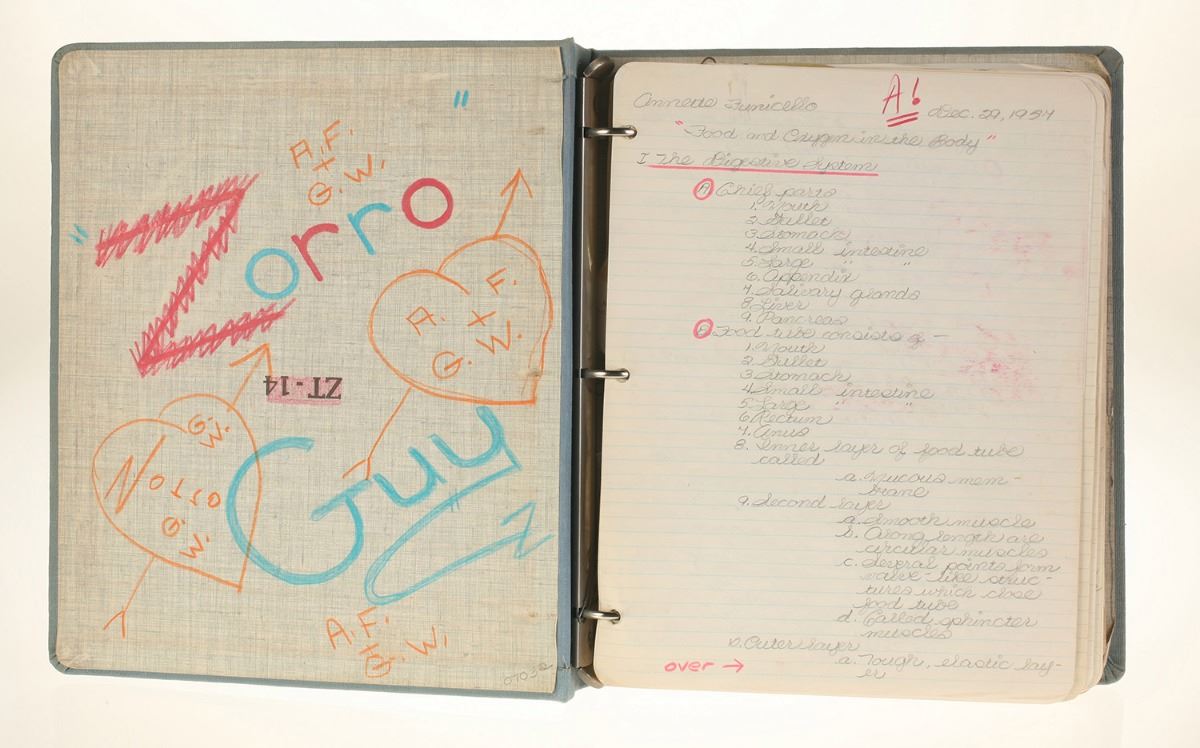 "
A.F.
+
G.W.
"Zorro
A. F.
X
G. W.
ZT-14
G.
W.
Zorro
G.
W.
Guy
Z
A.F.
+
G. W.
Annette Funicello
A!
Dec. 29, 1957
"Food and Oxygen in the Body"
I The Digestive System
A Chief parts
1. Mouth
2. Gullet
3. Stomach
4. Small intestine
5. Large " "
6. Appendix
7. Salivary glands
8. Liver
9. Pancreas
B Food tube consists of -
1. Mouth
2. Gullet
3. Stomach
4. Small intestine
5. Large " "
6. Rectum
7. Anus
8. Inner layer of food tube
called
a. Mucous mem-
brane
9. Second layer
a. Smooth muscle
b. Along length are
circular muscles
c. Several points form
valve-like struc-
tures which close
food tube
d. Called sphincter
muscles
Outer layer
a. Tough, elastic lay-
er
over →